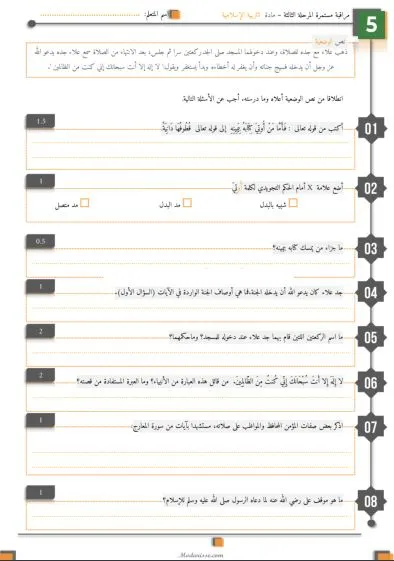 مراقبة مستمرة المرحلة الثالثة - مادة التربية الإسلامية
إسم المتعلم:
5
نص الوضعية
ذهب علاء مع جده للصلاة، وعند دخولهما المسجد صلى الجد ركعتين سرا ثم جلس، بعد الانتهاء من الصلاة سمع علاء جده يدعو الله
عز وجل أن يدخله فسيح جناته وأن يغفر له أخطاءه وبدأ يستغفر ويقول: لا إله إلا أنت سبحانك إني كنت من الظالمين".
انطلاقا من نص الوضعية أعلاه وما درسته، أجب عن الأسئلة التالية.
01
أكتب من قوله تعالى : فَأَمَّا مَنْ أُوتِيَ كِتَابَهُ بِيَمِينِهِ إلى قوله تعالى قُطُوفُهَا دَانِيَةٌ
1.5
02
أضع علامة X أمام الحكم التجويدي لكلمة أُوتِيَ
1
شبيه بالبدل
مد البدل
مد متصل
03
ما جزاء من يمسك كتابه بيمينه؟
0.5
04
جد علاء كان يدعو الله أن يدخله الجنة،فما هي أوصاف الجنة الواردة في الآيات (السؤال الأول).
1
05
ما اسم الركعتين اللتين قام بهما جد علاء عند دخوله للمسجد؟ وما حكمهما؟
2
06
لا إِلَهَ إِلا أَنتَ سُبْحَانَكَ إِنِّي كُنتُ مِنَ الظَّالِمِينَ. من قائل هذه العبارة من الأنبياء؟ وما العبرة المستفادة من قصته؟
2
07
اذكر بعض صفات المؤمن المحافظ والمواظب على صلاته، مستشهدا بآيات من سورة المعارج.
1
08
ما هو موقف علي رضي الله عنه لما دعاه الرسول صلى الله عليه وسلم للإسلام؟
1
Madarisse.com